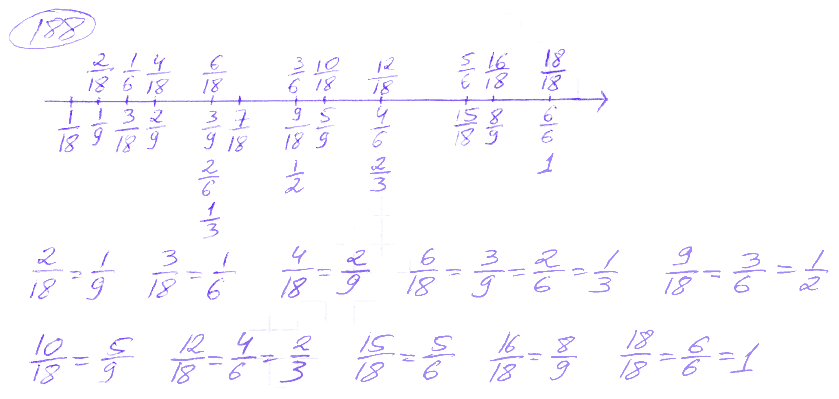 188
2/18 1/6 4/18 6/18 3/6 10/18 12/18 5/6 16/18 18/18
1/18 1/9 3/18 2/9 3/9 7/18 9/18 5/9 4/6 15/18 8/9 6/6
2/6 1/2 2/3 1
1/3
2/18 = 1/9 3/18 = 1/6 4/18 = 2/9 6/18 = 3/9 = 2/6 = 1/3 9/18 = 3/6 = 1/2
10/18 = 5/9 12/18 = 4/6 = 2/3 15/18 = 5/6 16/18 = 8/9 18/18 = 6/6 = 1